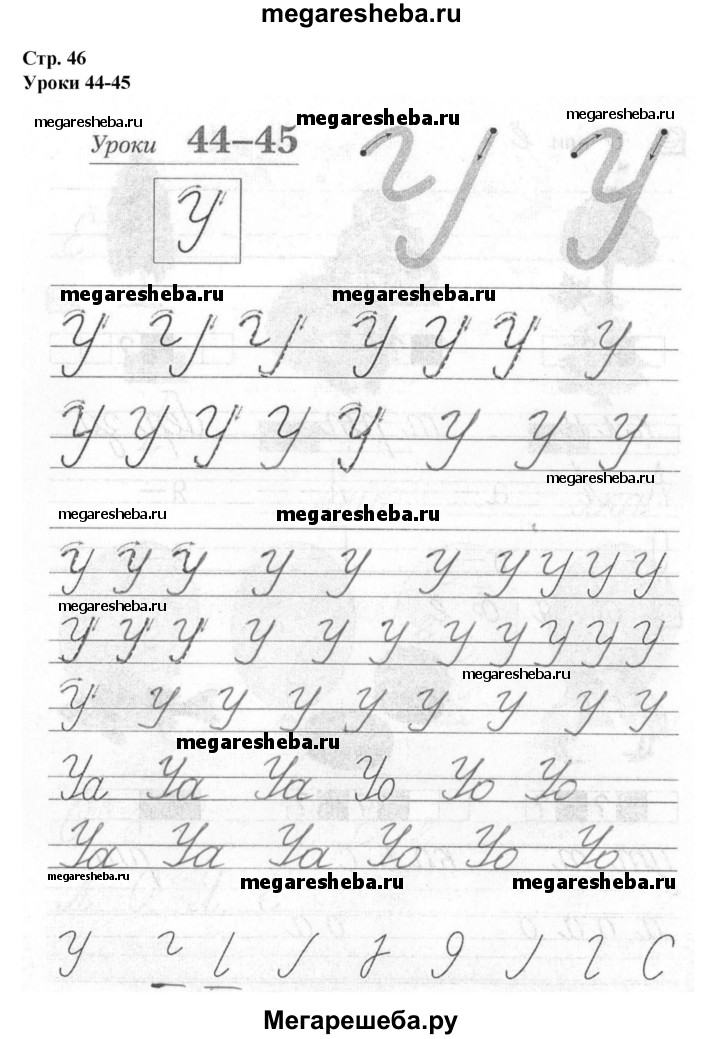 megaresheba.ru
Стр. 46
Уроки 44-45
megaresheba.ru megaresheba.ru megaresheba.ru
Уроки 44–45
У У
У
megaresheba.ru megaresheba.ru
У У У У У У У
У У У У У У У У
megaresheba.ru
megaresheba.ru megaresheba.ru
У У У У У У У У У У
megaresheba.ru
У У У У У У У У У У У
megaresheba.ru
У У У У У У У У У
megaresheba.ru
Уа Уа Уа Уо Уо Уо
Уа Уа Уа Уо Уо Уо
megaresheba.ru megaresheba.ru megaresheba.ru
У
Мегарешеба.ру